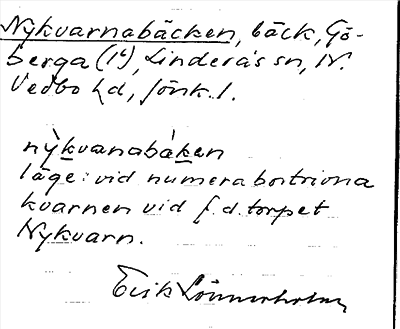 Nykvarnabäcken, bäck, Gö-
berga (1⁶), Linderås sn, N.
Vedbo hd, Jönk. l.
nỳkvanabáken
läge: vid numera bortrivna
kvarnen vid f.d. torpet
Nykvarn.
Erik Lönnerholm